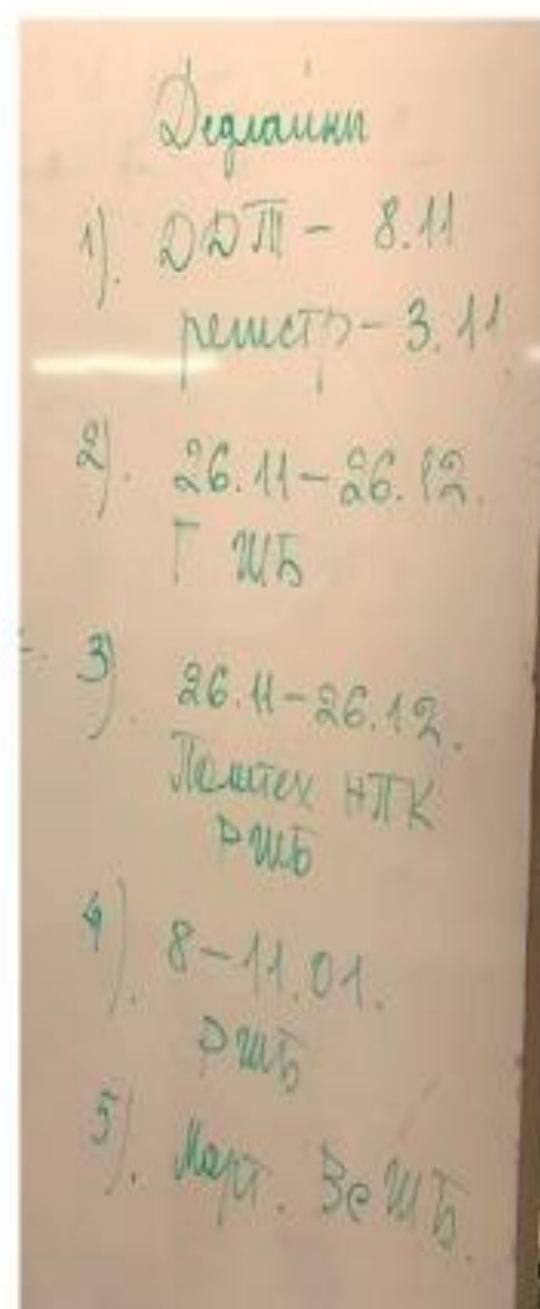 Дедлайны
1). ДДТ - 8.11
регистр - 3.11
2). 26.11 - 26.12.
Г ШБ
3). 26.11 - 26.12.
Политех НПК
РШБ
4). 8 - 11.01.
РШБ
5). Март. Ве ШБ.